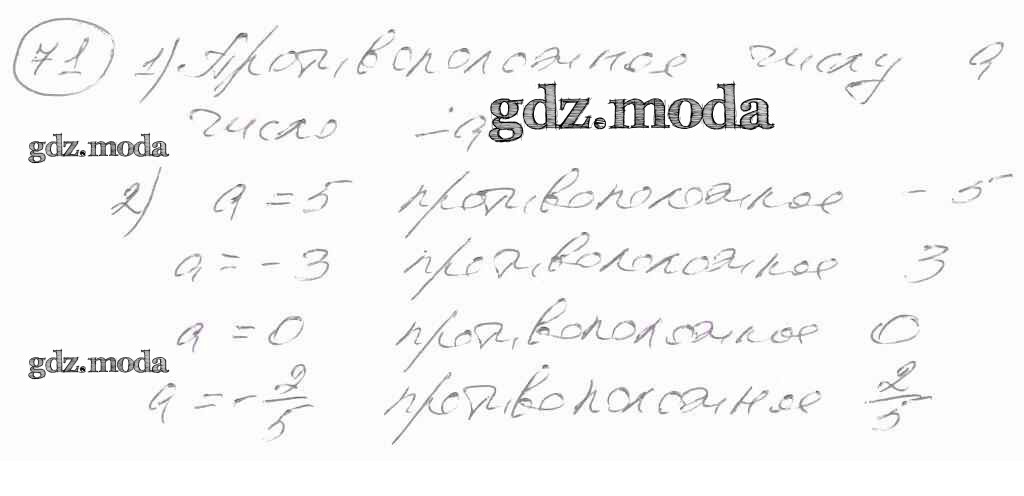 71 1) Противоположное числу a
число -a gdz.moda
gdz.moda
2) a = 5 противоположное - 5
a = - 3 противоположное 3
a = 0 противоположное 0
gdz.moda
a = - 2/5 противоположное 2/5